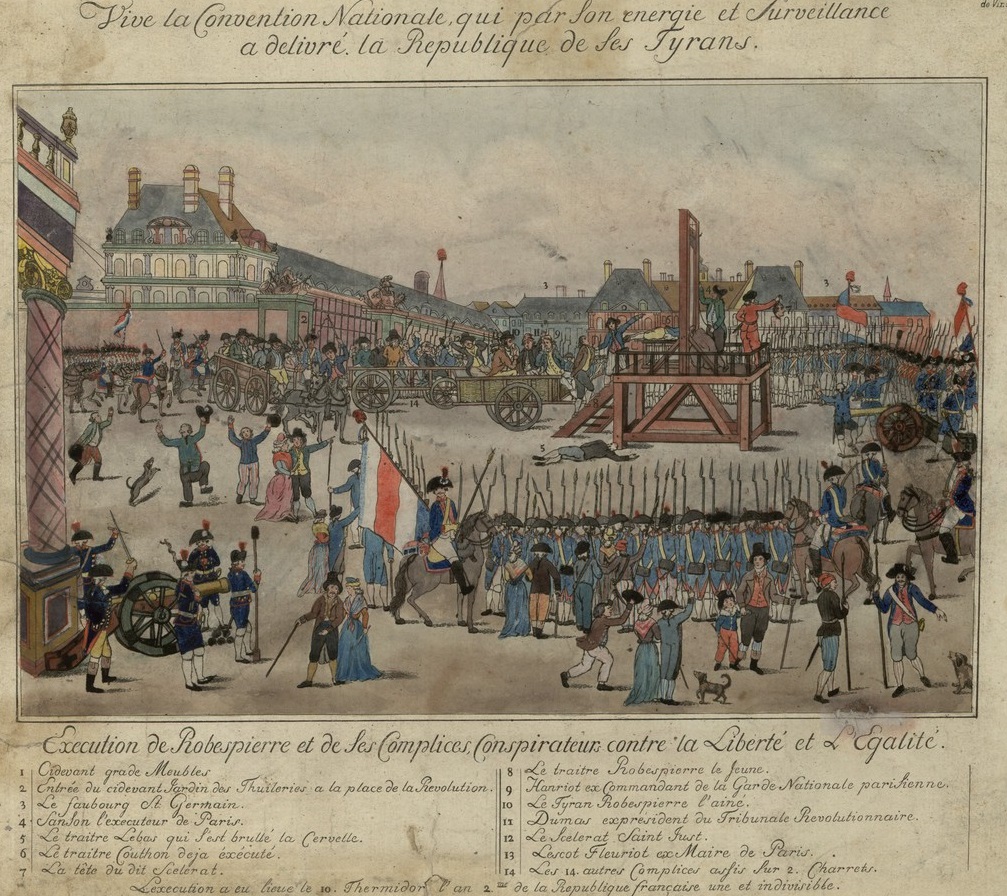 Vive la Convention Nationale, qui par son energie et Surveillance
a delivré. la Republique de ses Tyrans.
3
3
2
9
14
5
Execution de Robespierre et de ses Complices Conspirateurs contre la Liberté et L'Egalité.
1 Cidevant grade Meubles
2 Entrée du cidevant Jardin des Thuileries a la place de la Revolution.
3 Le faubourg St Germain.
4 Sanson l'executeur de Paris.
5 Le traitre Lebas qui s'est brullé la Cervelle.
6 Le traitre Couthon deja exécuté.
7 La tête du dit Scelerat.
8 Le traitre Robespierre le Jeune.
9 Hanriot ex Commandant de la Garde Nationale parisienne.
10 Le Tyran Robespierre l'ainé.
11 Dumas exprésident du Tribunale Revolutionnaire.
12 Le Scelerat Saint Just.
13 Lescot Fleuriot ex Maire de Paris.
14 Les 14. autres Complices assis Sur 2. Charrets.
L'execution a eu lieue le 10. Thermidor l'an 2.me de la Republique française une et indivisible.